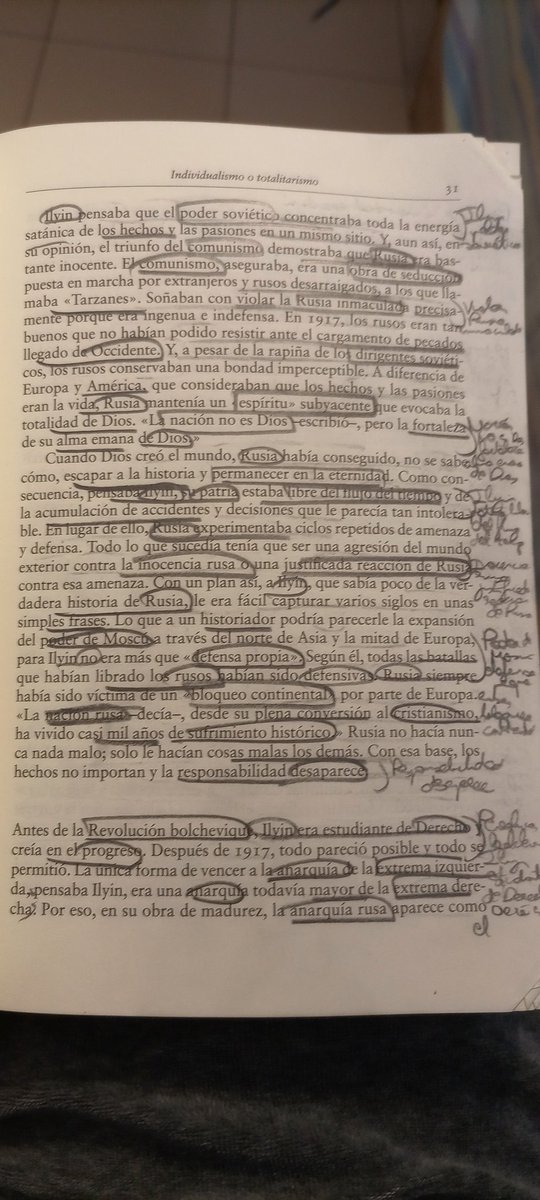 Individualismo o totalitarismo
31
Ilyin pensaba que el poder soviético concentraba toda la energía
satánica de los hechos y las pasiones en un mismo sitio. Y, aun así, en
su opinión, el triunfo del comunismo demostraba que Rusia era bas-
tante inocente. El comunismo, aseguraba, era una obra de seducción
puesta en marcha por extranjeros y rusos desarraigados, a los que lla-
maba «Tarzanes». Soñaban con violar la Rusia inmaculada precisa-
mente porque era ingenua e indefensa. En 1917, los rusos eran tan
buenos que no habían podido resistir ante el cargamento de pecados
llegado de Occidente. Y, a pesar de la rapiña de los dirigentes soviéti-
cos, los rusos conservaban una bondad imperceptible. A diferencia de
Europa y América, que consideraban que los hechos y las pasiones
eran la vida, Rusia mantenía un «espíritu» subyacente que evocaba la
totalidad de Dios. «La nación no es Dios –escribió–, pero la fortaleza
de su alma emana de Dios.»
Cuando Dios creó el mundo, Rusia había conseguido, no se sabe
cómo, escapar a la historia y permanecer en la eternidad. Como con-
secuencia, pensaba Ilyin, su patria estaba libre del flujo del tiempo y de
la acumulación de accidentes y decisiones que le parecía tan intolera-
ble. En lugar de ello, Rusia experimentaba ciclos repetidos de amenaza
y defensa. Todo lo que sucedía tenía que ser una agresión del mundo
exterior contra la inocencia rusa o una justificada reacción de Rusia
contra esa amenaza. Con un plan así, a Ilyin, que sabía poco de la ver-
dadera historia de Rusia, le era fácil capturar varios siglos en unas
simples frases. Lo que a un historiador podría parecerle la expansión
del poder de Moscú a través del norte de Asia y la mitad de Europa,
para Ilyin no era más que «defensa propia». Según él, todas las batallas
que habían librado los rusos habían sido defensivas. Rusia siempre
había sido víctima de un «bloqueo continental» por parte de Europa.
«La nación rusa –decía–, desde su plena conversión al cristianismo,
ha vivido casi mil años de sufrimiento histórico.» Rusia no hacía nun-
ca nada malo; solo le hacían cosas malas los demás. Con esa base, los
hechos no importan y la responsabilidad desaparece.
Responsabilidad
desaparece
Antes de la Revolución bolchevique, Ilyin era estudiante de Derecho y
creía en el progreso. Después de 1917, todo pareció posible y todo se
permitió. La única forma de vencer a la anarquía de la extrema izquier-
da, pensaba Ilyin, era una anarquía todavía mayor de la extrema dere-
cha. Por eso, en su obra de madurez, la anarquía rusa aparece como
el